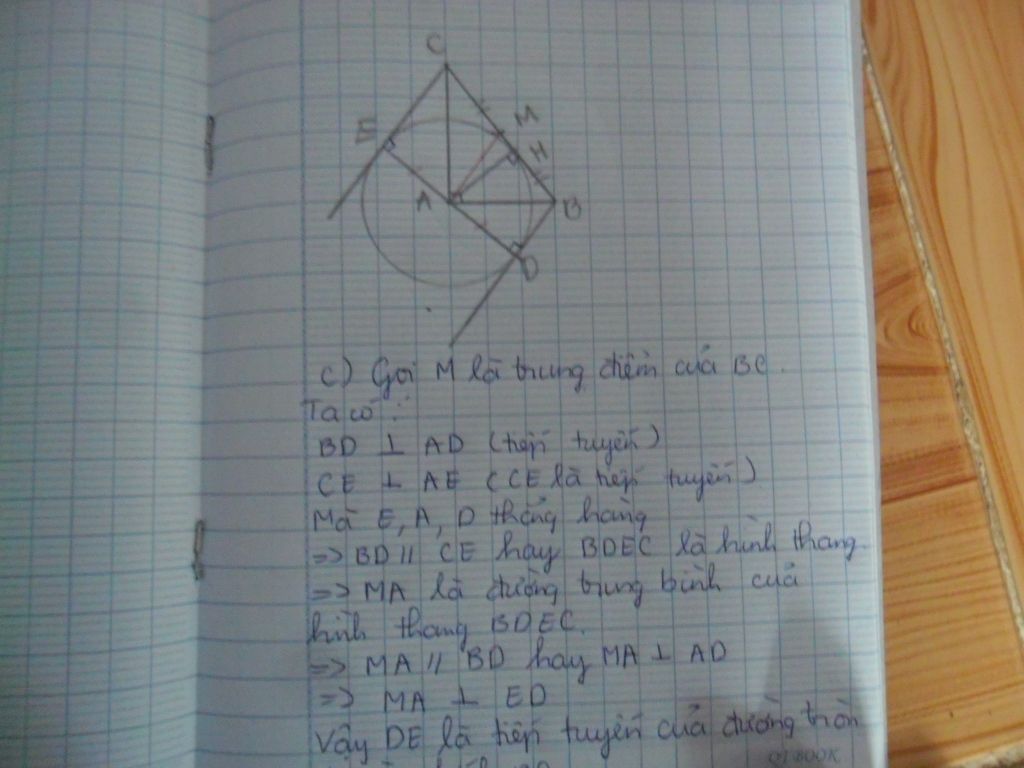 C
E
M
H
A
B
D
c) Gọi M là trung điểm của BC.
Ta có:
BD ⊥ AD (tiếp tuyến)
CE ⊥ AE (CE là tiếp tuyến)
Mà E, A, D thẳng hàng
=> BD // CE hay BDEC là hình thang.
=> MA là đường trung bình của
hình thang BDEC.
=> MA // BD hay MA ⊥ AD
=> MA ⊥ ED
Vậy DE là tiếp tuyến của đường tròn